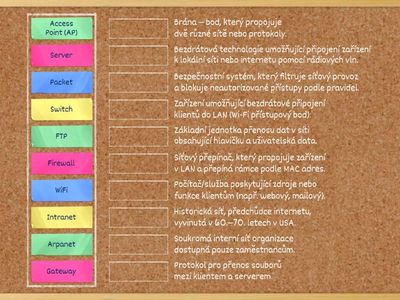 Access
Point (AP)
Server
Packet
Switch
FTP
Firewall
WiFi
Intranet
Arpanet
Gateway
Brána – bod, který propojuje
dvě různé sítě nebo protokoly.
Bezdrátová technologie umožňující připojení zařízení
k lokální síti nebo internetu pomocí rádiových vln.
Bezpečnostní systém, který filtruje síťový provoz
a blokuje neautorizované přístupy podle pravidel.
Zařízení umožňující bezdrátové připojení
klientů do LAN (Wi-Fi přístupový bod).
Základní jednotka přenosu dat v síti
obsahující hlavičku a uživatelská data.
Síťový přepínač, který propojuje zařízení
v LAN a přepíná rámce podle MAC adres.
Počítač/služba poskytující zdroje nebo
funkce klientům (např. webový, mailový).
Historická síť, předchůdce internetu,
vyvinutá v 60.–70. letech v USA.
Soukromá interní síť organizace
dostupná pouze zaměstnancům.
Protokol pro přenos souborů
mezi klientem a serverem.